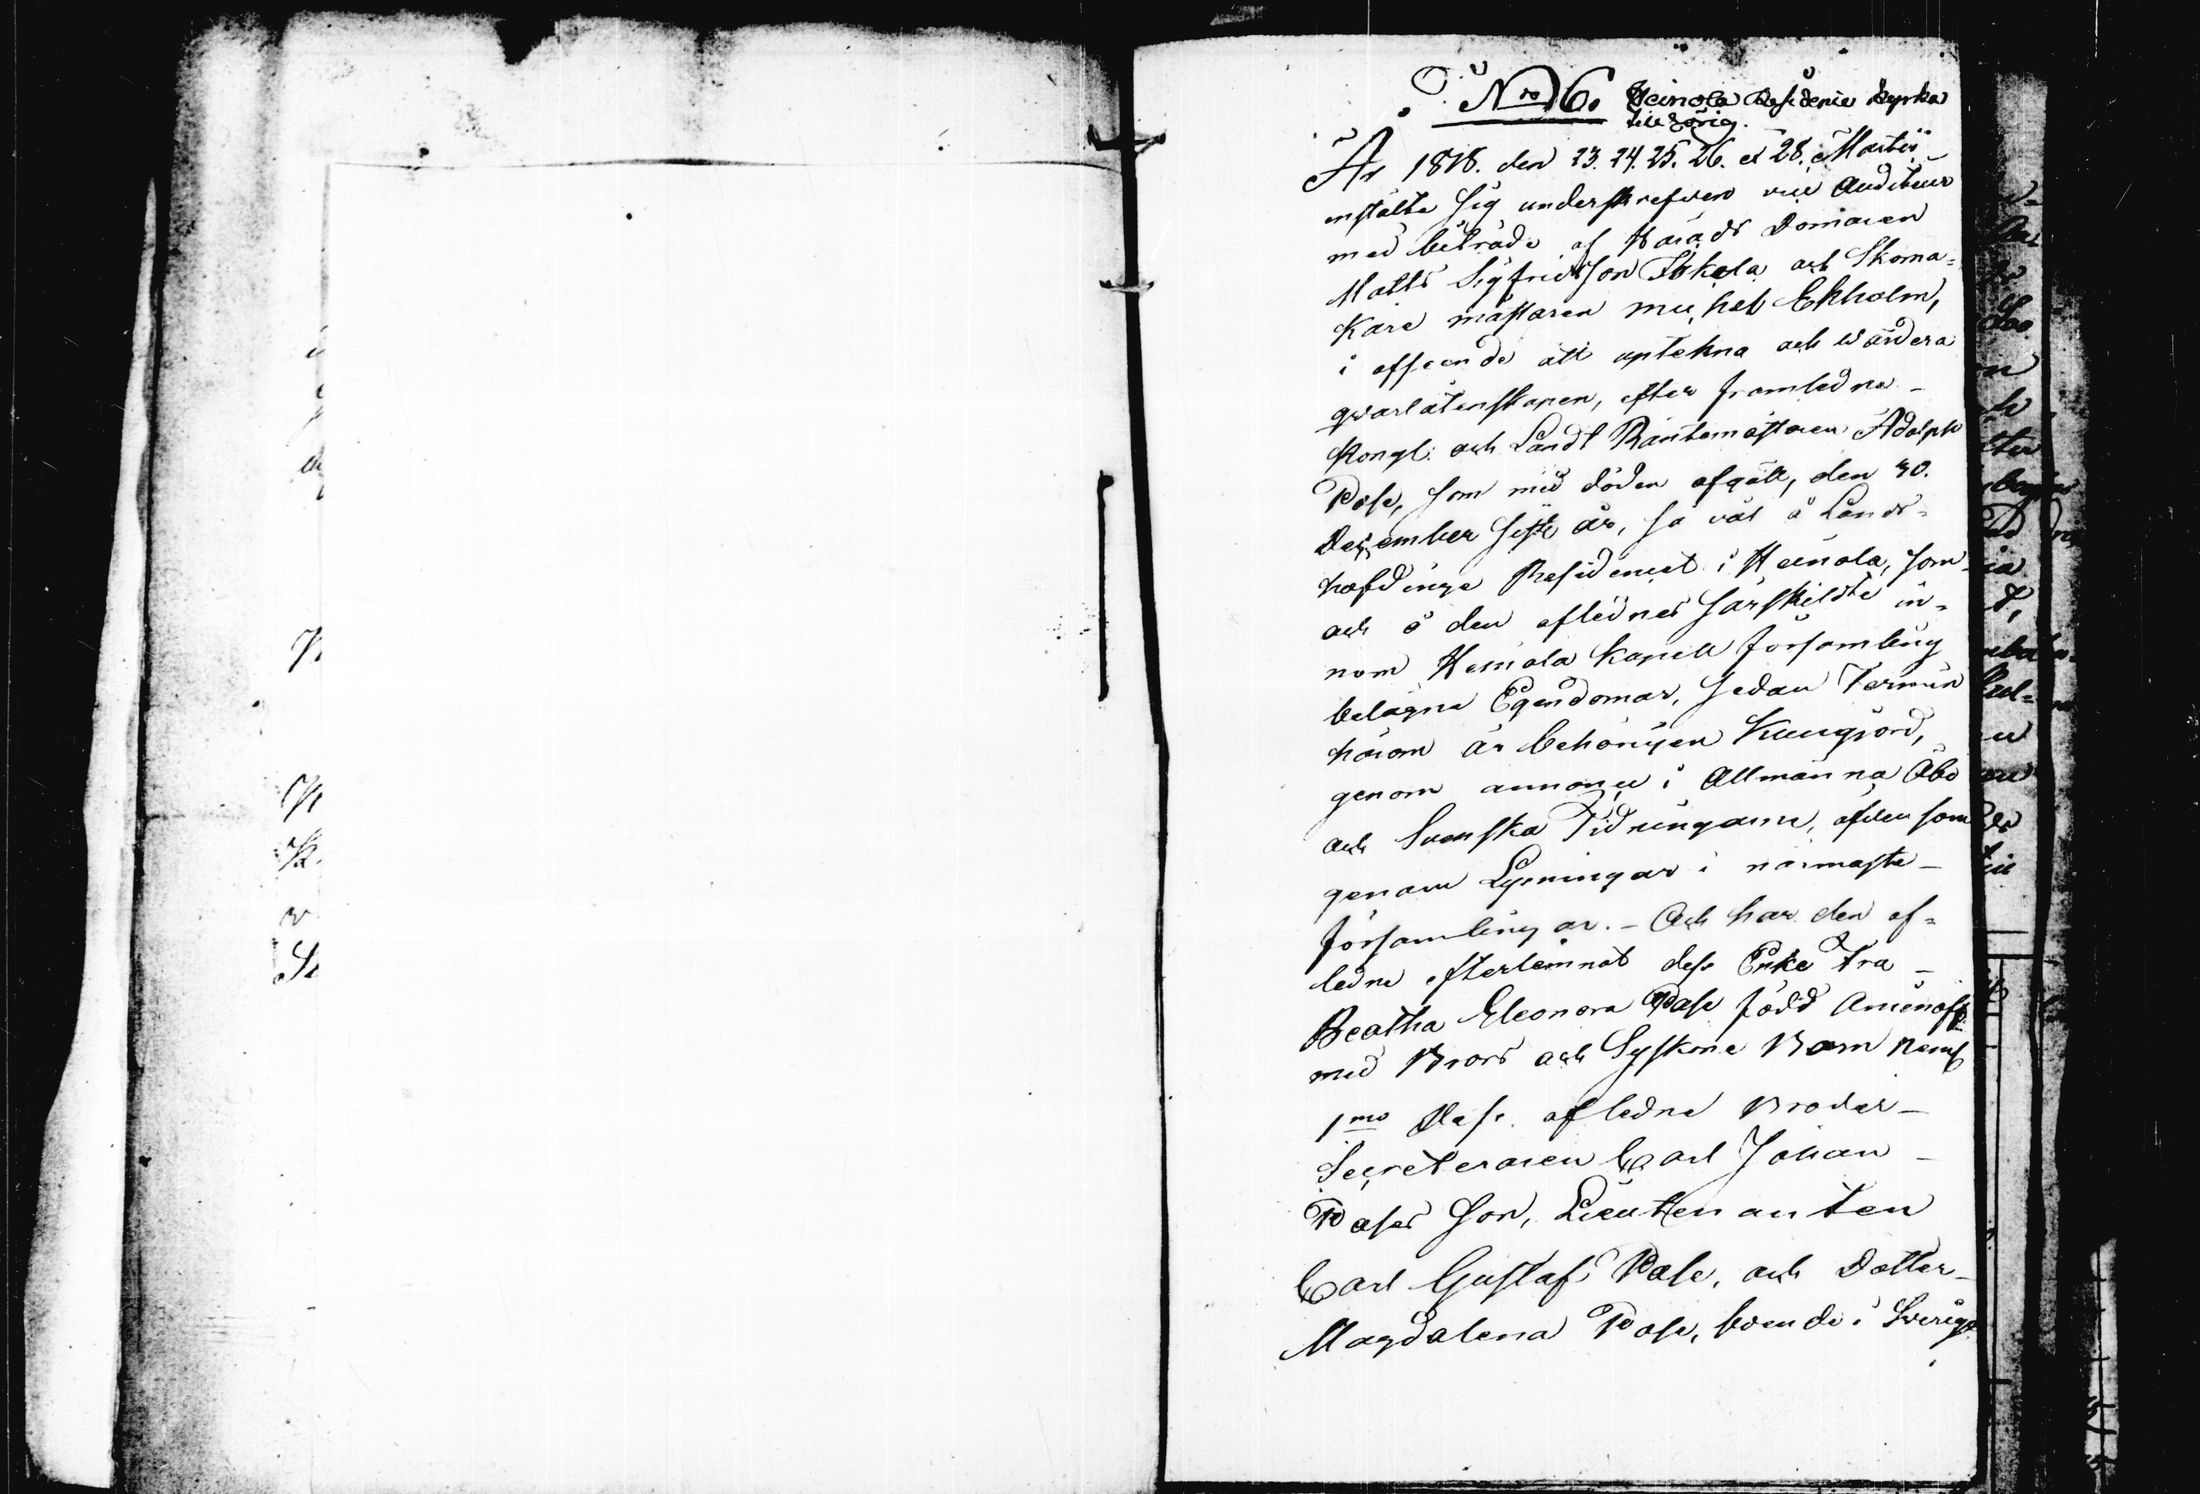 No 6. Heinola Residence Kyrka
tillhörig.
År 1818. den 23. 24. 25. 26. et 28. Martii
instälte sig underskrefven vice Auditeur
med biträde af Härads Domaren
Matts Sigfridsson Iskala och Skoma=
kare mästaren Michel Ekholm,
i afseende att uptekna och wärdera
qvarlåtenskapen, efter framledne
Kongl. och Landt Räntemästaren Adolph
Pose, som med döden afgått, den 30.
December sistl. år, så väl å Lands=
höfdinge Residencet i Heinola, som
och å den aflednes särskildte in=
nom Heinola Kapell församling
belägne Egendomar, sedan Termin
härom är behörigen Kungjord,
genom annonce i Allmänna Åbo
och Svenska Tidningarne, äfven som
genom Lysningar i närmaste
församlingar. - Och har den af=
ledne efterlemnat dess Enke Fru
Beatha Eleonora Pose född Aminoff
med Brors och Syskone Barn neml.
1mo Dess afledne Broder
Secreteraren Carl Johan
Poses Son, Lieutenanten
Carl Gustaf Pose, och Dotter
Magdalena Pose, boende i Sverige